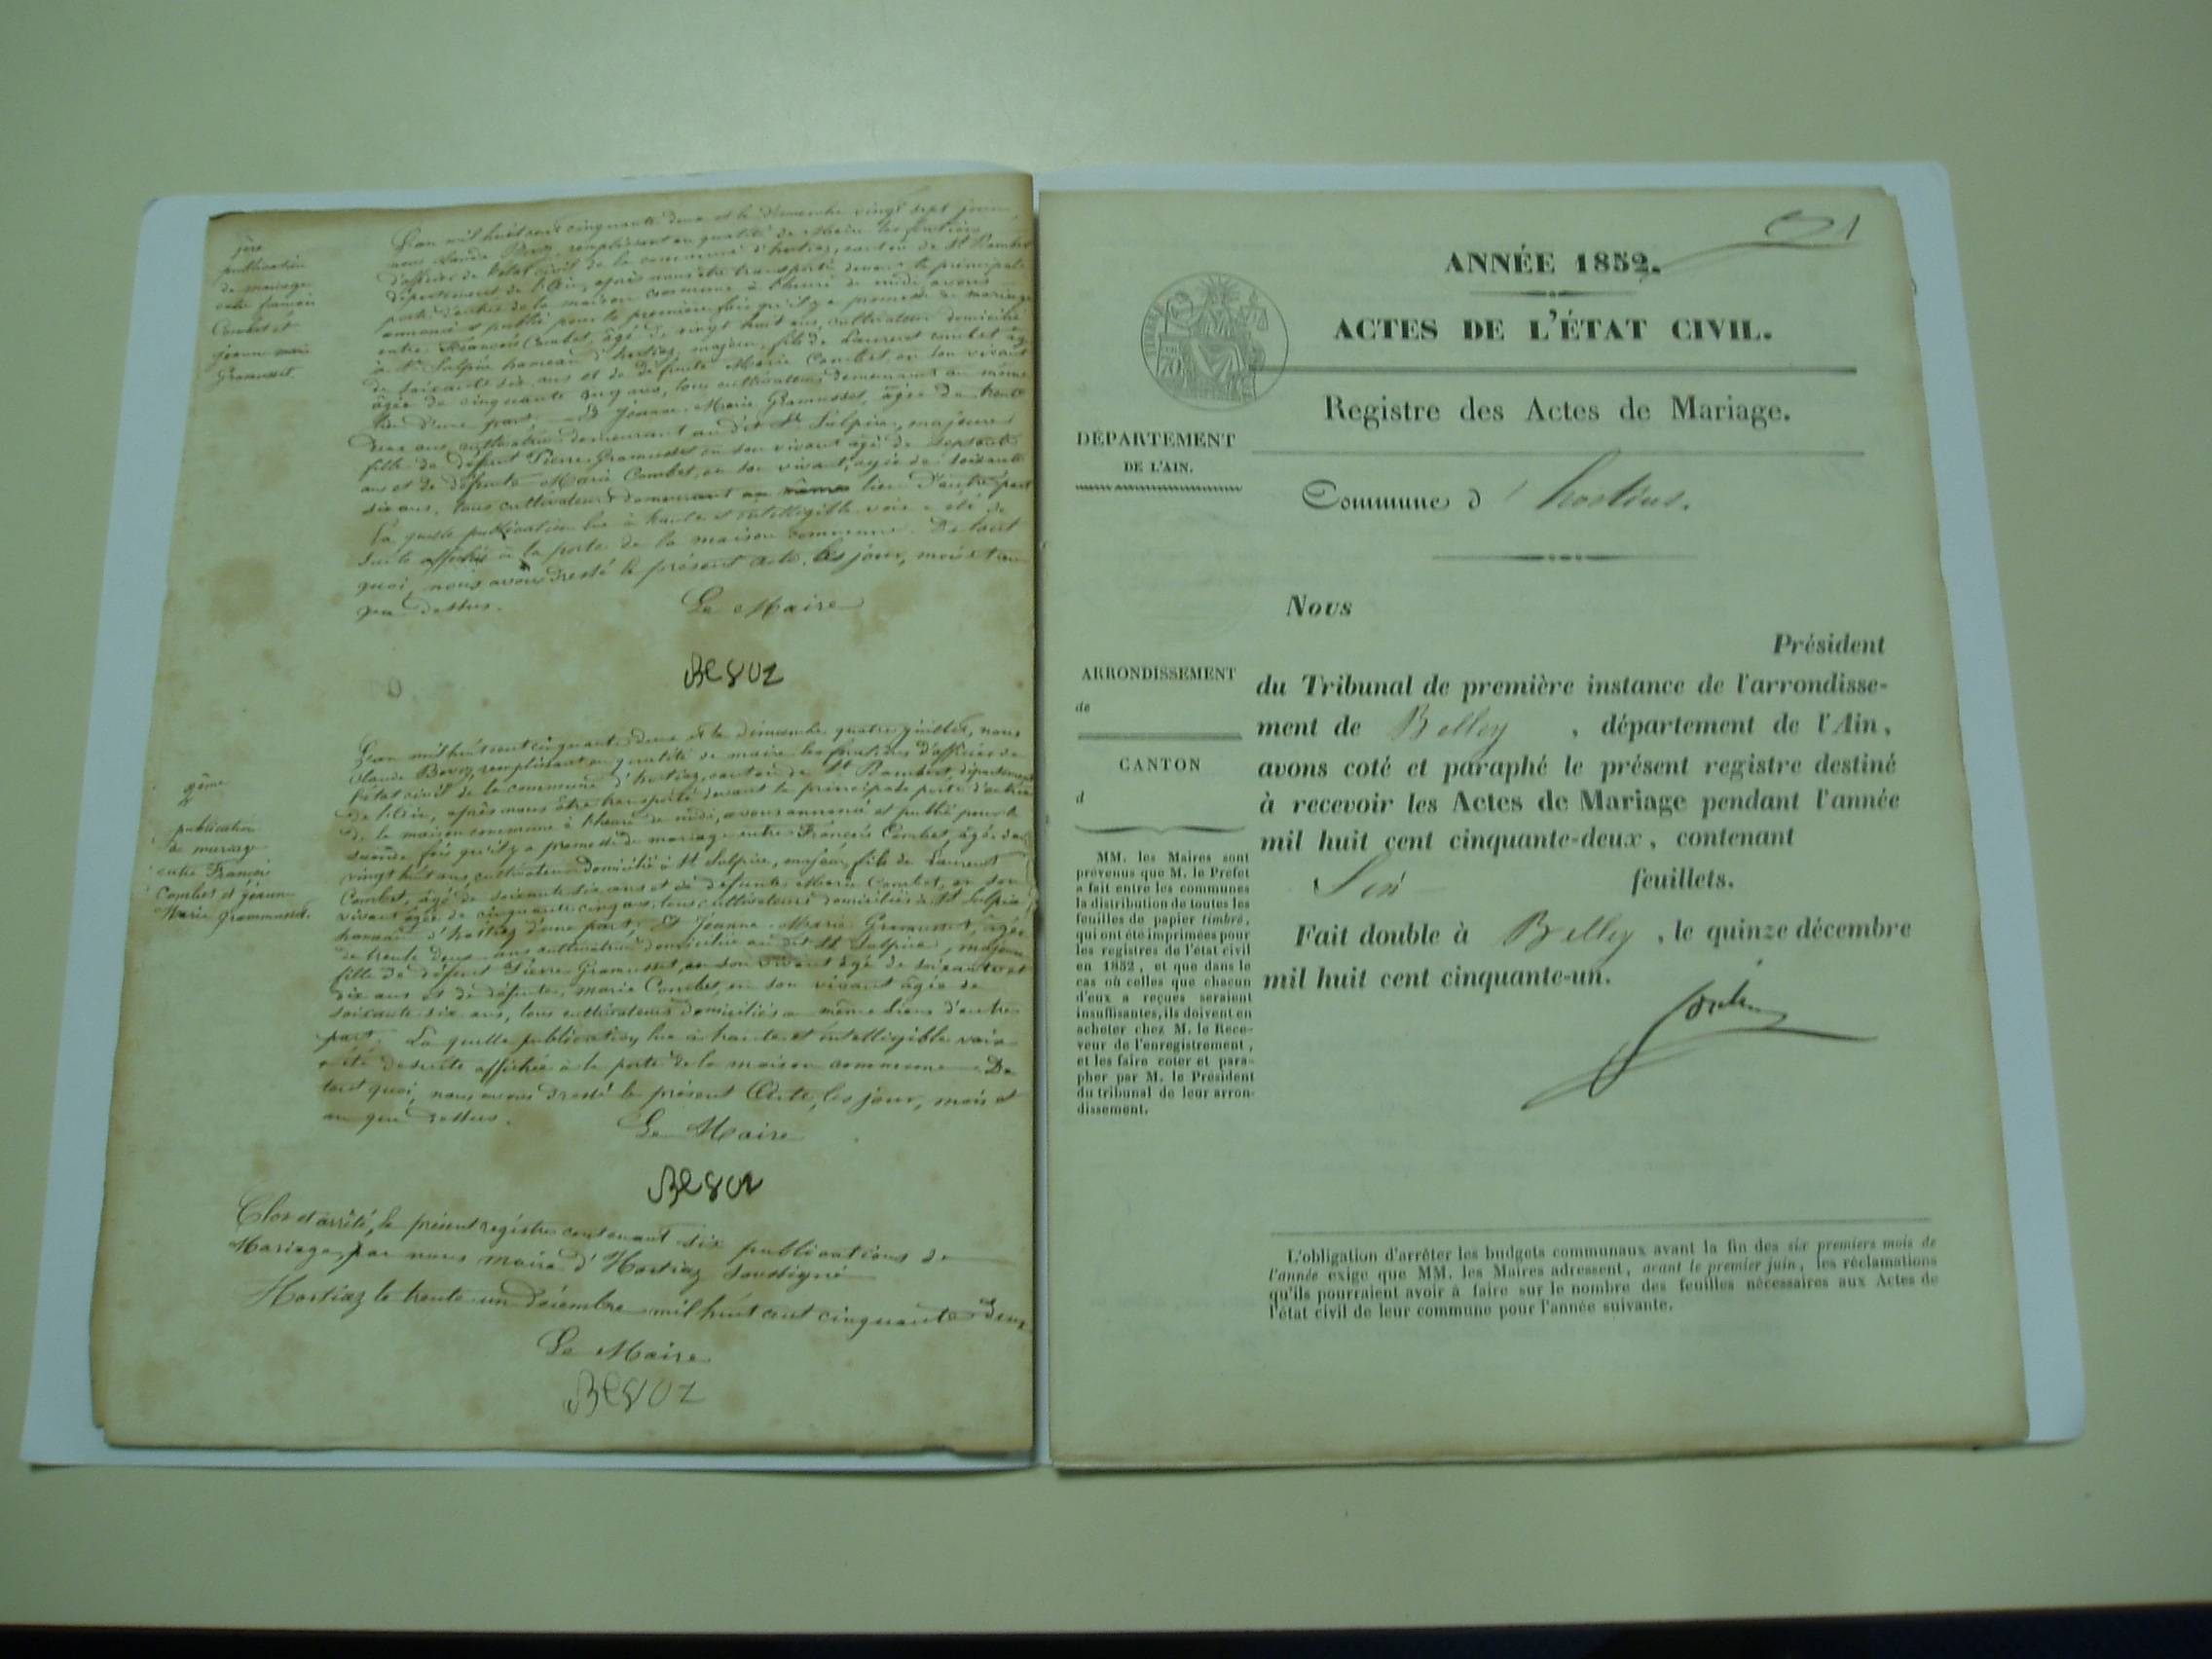 1ère
publication
de mariage
entre francois
Combet et
jeanne marie
Gramusset
L'an mil huit cent cinquante deux et le dimanche vingt sept juin,
nous Claude Bevoz, remplissant en qualité de Maire les fonctions
d'officier de l'état civil de la commune d'hostiaz, canton de St Rambert
département de l'Ain, après nous être transporté devant la principale
porte d'entrée de la maison commune à l'heure de midi, avons
annoncé et publié pour la première fois qu'il y a promesse de mariage
entre François Combet, âgé de vingt huit ans, cultivateur domicilié
à St Sulpice hameau d'hostiaz, majeur, fils de Laurent Combet âgé
de soixante six ans et de défunte Marie Combet en son vivant
âgée de cinquante cinq ans, tous cultivateurs demeurant au même
lieu d'une part. Et Jeanne Marie Gramusset, âgée de trente
deux ans, cultivatrice demeurant au dit St Sulpice, majeure
fille de défunt Pierre Gramusset en son vivant âgé de
ans et de défunte Marie Combet, en son vivant, âgée de soixante
six ans, tous cultivateurs demeurant au même lieu d'autre part
La quelle publication lue à haute et intelligible voix a été de
suite affichée à la porte de la maison commune. De tout
quoi, nous avons dressé le présent acte, les jour, mois et an
que dessus.
Le Maire
BEVOZ
2ème
publication
de mariage
entre Francois
Combet et jeanne
Marie gramusset.
L'an mil huit cent cinquante deux et le dimanche quatre juillet, nous
Claude Bevoz, remplissant en qualité de maire les fonctions d'officier de
l'état civil de la commune d'hostiaz, canton de St Rambert, département
de l'Ain, après nous être transporté devant la principale porte d'entrée
de la maison commune à l'heure de midi, avons annoncé et publié pour la
seconde fois qu'il y a promesse de mariage entre François Combet, âgé de
vingt huit ans, cultivateur domicilié à St Sulpice, majeur, fils de Laurent
Combet, âgé de soixante six ans et de défunte Marie Combet, en son
vivant âgée de cinquante cinq ans, tous cultivateurs domiciliés à St Sulpice
hameau d'hostiaz d'une part, Et Jeanne Marie Gramusset, âgée
de trente deux ans cultivatrice domiciliée au dit St Sulpice, majeure
fille de défunt Pierre Gramusset, en son vivant âgé de soixante et
dix ans et de défunte, marie Combet, en son vivant âgée de
soixante six ans, tous cultivateurs domiciliés au même lieu d'autre
part. La quelle publication, lue à haute et intelligible voix
a été de suite affichée à la porte de la maison commune. De
tout quoi, nous avons dressé le présent Acte, les jour, mois et
an que dessus.
Le Maire
BEVOZ
Clos et arrêté, le présent registre contenant six publications de
Mariage, par nous maire d'Hostiaz soussigné
Hostiaz le trente un décembre mil huit cent cinquante deux
Le Maire
BEVOZ
1
ANNÉE 1852.
ACTES DE L'ÉTAT CIVIL.
Registre des Actes de Mariage.
DÉPARTEMENT
DE L'AIN.
Commune d'hostias.
Nous
Président
ARRONDISSEMENT
de
CANTON
d
du Tribunal de première instance de l'arrondisse-
ment de Belley, département de l'Ain,
avons coté et paraphé le présent registre destiné
à recevoir les Actes de Mariage pendant l'année
mil huit cent cinquante-deux, contenant
Six feuillets.
Fait double à Belley, le quinze décembre
mil huit cent cinquante-un.
MM. les Maires sont
prévenus que M. le Préfet
a fait entre les communes
la distribution de toutes les
feuilles de papier timbré,
qui ont été imprimées pour
les registres de l'état civil
en 1852, et que dans le
cas où celles que chacun
d'eux a reçues seraient
insuffisantes, ils doivent en
acheter chez M. le Rece-
veur de l'enregistrement,
et les faire coter et para-
pher par M. le Président
du tribunal de leur arron-
dissement.
L'obligation d'arrêter les budgets communaux avant la fin des six premiers mois de
l'année exige que MM. les Maires adressent, avant le premier juin, les réclamations
qu'ils pourraient avoir à faire sur le nombre des feuilles nécessaires aux Actes de
l'état civil de leur commune pour l'année suivante.